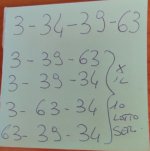 3-34-39-63
3-39-63
3-39-34
3-63-34
63-39-34
X
IL
10
LOTTO
SER.